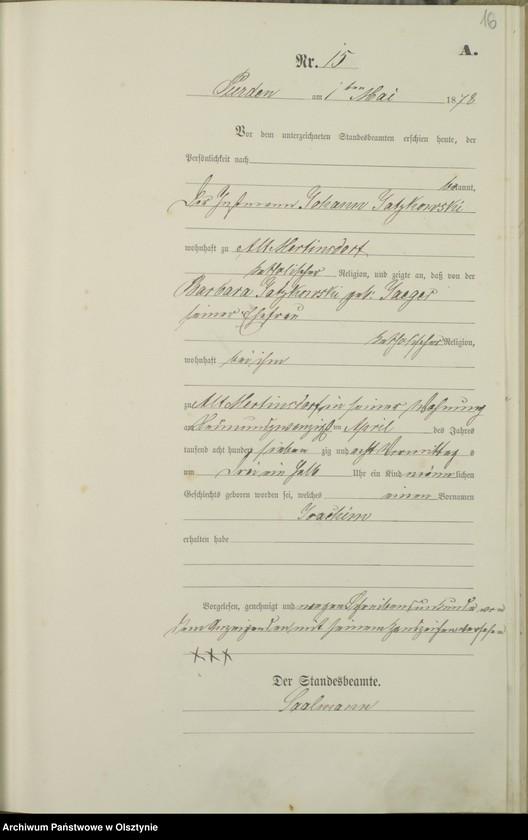 16
A.
Nr. 15
Purden am 1ten Mai 1878
Vor dem unterzeichneten Standesbeamten erschien heute, der
Persönlichkeit nach
bekannt,
Der Instmann Johann Gatzkowski
wohnhaft zu Alt Mertinsdorf
katholischer Religion, und zeigte an, daß von der
Barbara Gatzkowski geb. Jaeger
seiner Ehefrau
katholischer Religion,
wohnhaft bei ihm
zu Alt Mertinsdorf in seiner Wohnung
am Neunundzwanzigst ten April des Jahres
tausend acht hundert sieben zig und acht Vormittag s
um drei ein halb Uhr ein Kind männ lichen
Geschlechts geboren worden sei, welches einen Vornamen
Joachim
erhalten habe
Vorgelesen, genehmigt und wegen Schreibensunkunde von
dem Anzeigenden mit seinem Handzeichen versehen
+++
Der Standesbeamte.
Saalmann
Archiwum Państwowe w Olsztynie